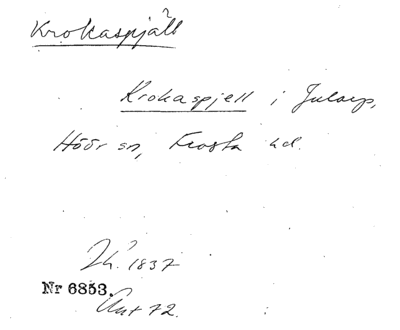 Krokaspjäll
Krokaspjell i Jularp,
Höör sn, Frosta hd.
1837
Nr 6853.
Ant 72.